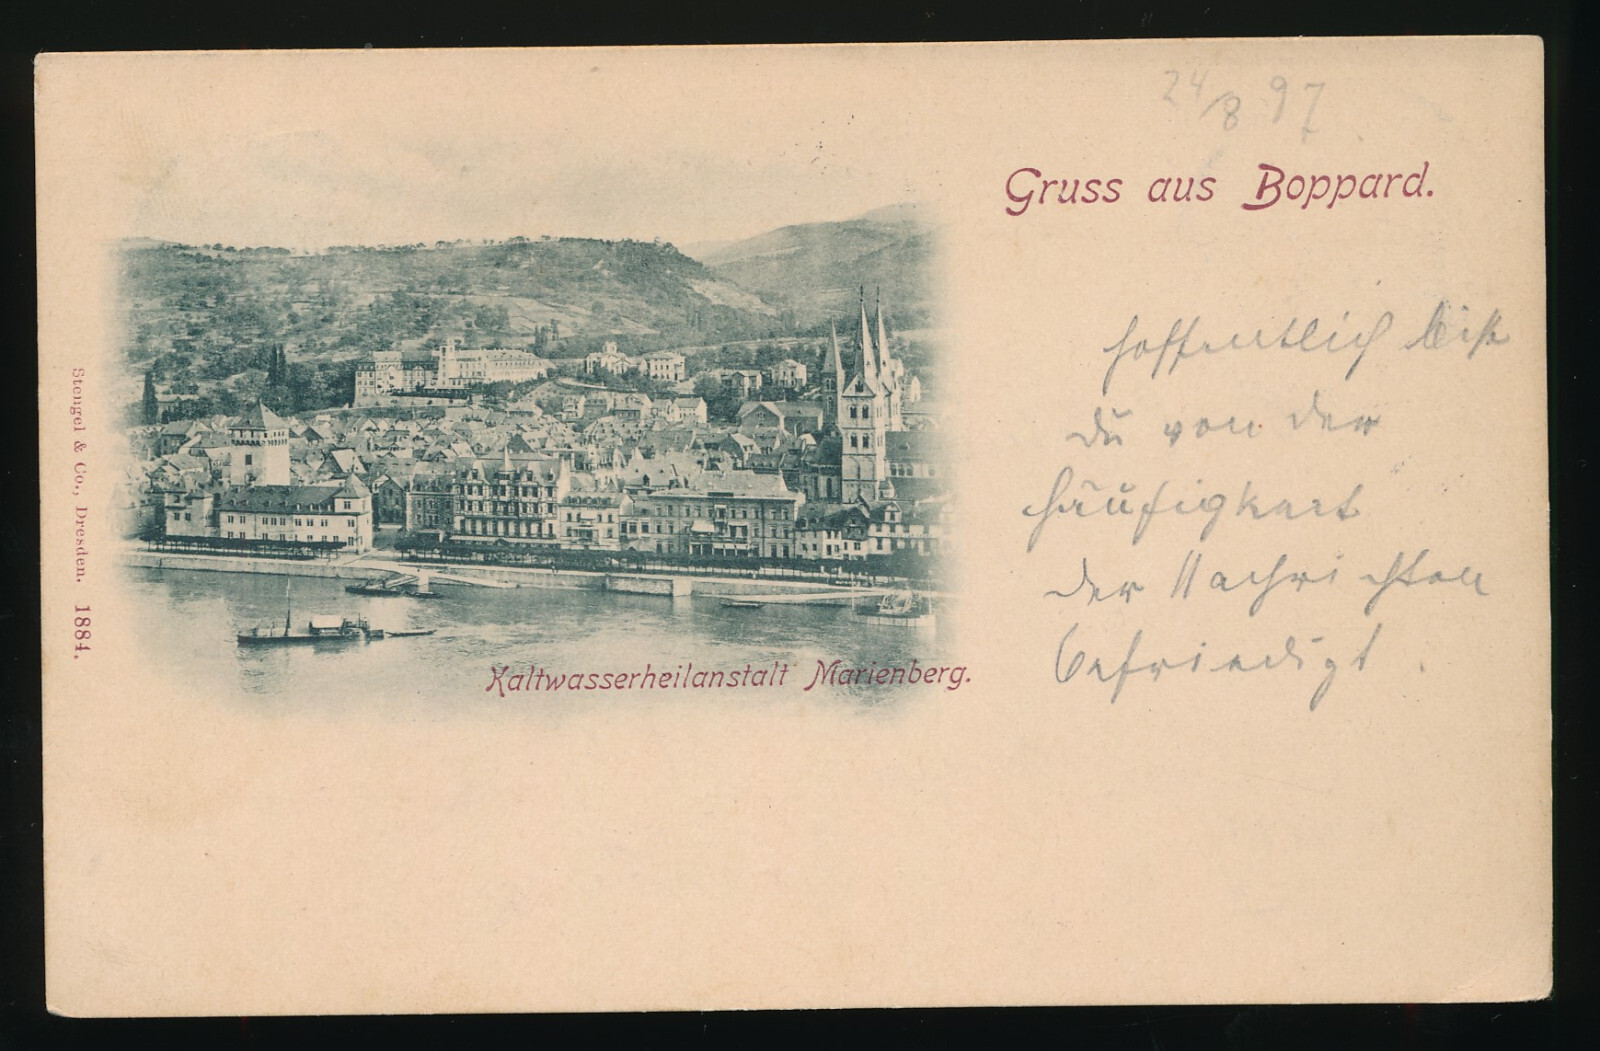 24/8 97
Gruss aus Boppard.
hoffentlich bist
du von der
häufigkeit
der Nachrichten
befriedigt.
Kaltwasserheilanstalt Marienberg.
Stengel & Co., Dresden. 1884.